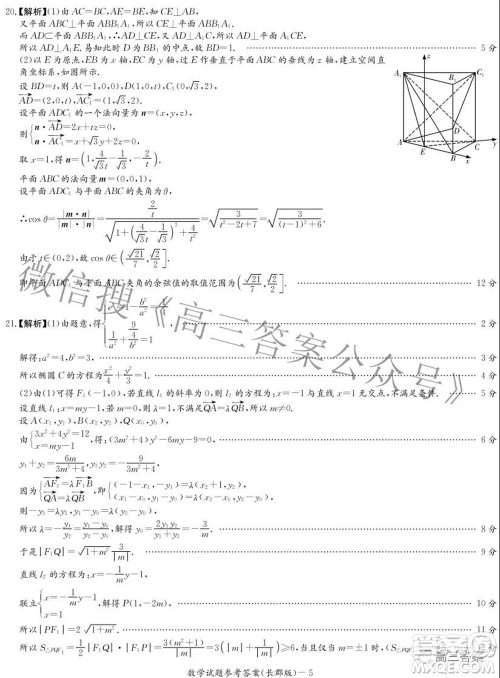 20.【解析】(1)由 AC=BC,AE=BE,知 CE⊥AB,
又平面 ABC⊥平面 ABB₁A₁,所以 CE⊥平面 ABB₁A₁,
而 AD⊂平面 ABB₁A₁,∴CE⊥AD,又 AD⊥A₁C,
所以 AD⊥A₁E.易知此时 D 为 BB₁ 的中点,故 BD=1. 5 分
(2)以 E 为原点,EB 为 x 轴,EC 为 y 轴,过 E 作垂直于平面 ABC 的垂线为 z 轴,建立空间直
角坐标系,如图所示.
设 BD=t,则 A(-1,0,0),D(1,0,t),C₁(0,√3,2),
AD=(2,0,t),AC₁=(1,√3,2).
设平面 ADC₁ 的一个法向量为 n=(x,y,z),
则{n·AD=2x+tz=0, n·AC₁=x+√3y+2z=0.
取 x=1,得 n=(1, 4/(√3t)-1/√3, -2/t).
平面 ABC 的法向量 m=(0,0,1),
设平面 ADC₁ 与平面 ABC 的夹角为 θ,
∴cos θ=|m·n|/(|m|·|n|)=(2/t)/√(1+(4/(√3t)-1/√3)²+4/t²)=√(3/(t²-2t+7))=√(3/((t-1)²+6)).
由于 t∈[0,2],故 cos θ∈[√21/7, √2/2].
即平面 ADC₁ 与平面 ABC 夹角的余弦值的取值范围为[√21/7, √2/2]. 12 分
21.【解析】(1)由题意,得{1-b²/a²=1/4, 1/a²+(9/4)/b²=1. 2 分
解得:a²=4,b²=3, 3 分
所以椭圆 C 的方程为 x²/4+y²/3=1. 4 分
(2)由(1)可得 F₁(-1,0),若直线 l₁ 的斜率为 0,则 l₂ 的方程为:x=-1 与直线 x=1 无交点,不满足条件. 5 分
设直线 l₁:x=my-1,若 m=0,则 λ=1,不满足 QA=λQB,所以 m≠0.
设 A(x₁,y₁),B(x₂,y₂),Q(x₀,y₀),
由{3x²+4y²=12, x=my-1,得:(3m²+4)y²-6my-9=0, 6 分
y₁+y₂=6m/(3m²+4),y₁y₂=-9/(3m²+4).
因为{AF₁=λF₁B, QA=λQB,即{(-1-x₁,-y₁)=λ(x₂+1,y₂), (x₁-x₀,y₁-y₀)=λ(x₂-x₀,y₂-y₀),
则-y₁=λy₂,y₁-y₀=λ(y₂-y₀),
所以 λ=-y₁/y₂=(y₁-y₀)/(y₂-y₀),解得 y₀=2y₁y₂/(y₁+y₂)=-3/m. 8 分
于是|F₁Q|=√(1+m²)|3/m|, 9 分
直线 l₂ 的方程为:x=-(1/m)y-1,
联立{x=-(1/m)y-1, x=1,解得 P(1,-2m), 10 分
所以|PF₁|=2√(1+m²). 11 分
所以 S△PQF₁=1/2|F₁Q|·|PF₁|=3(m²+1)/|m|=3(|m|+1/|m|)≥6,当且仅当 m=±1 时,(S△PQF
数学试题参考答案(长郡版)-5
微信搜《高三答案公众号》
高三答案
z
A₁
C₁
B₁
D
A
C
y
E
B
x